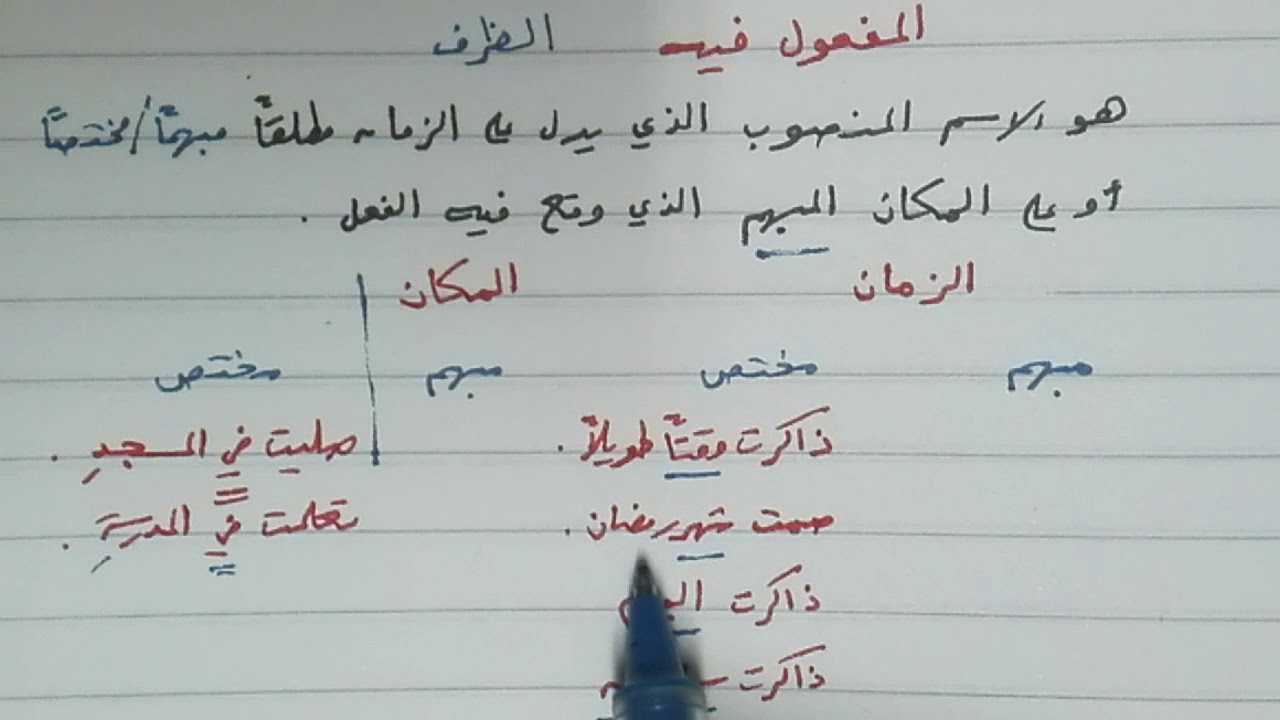 المفعول فيه الظرف
هو الاسم المنصوب الذي يدل على الزمان مطلقاً مبهمًا/مختصًا
أو على المكان المبهم الذي وقع فيه الفعل .
الزمان المكان
مبهم مختص مبهم مختص
ذاكرت وقتًا طويلاً . صليت في المسجدِ .
صمت شهر رمضان . تعلمت في المدرسةِ .
ذاكرت
ذاكرت